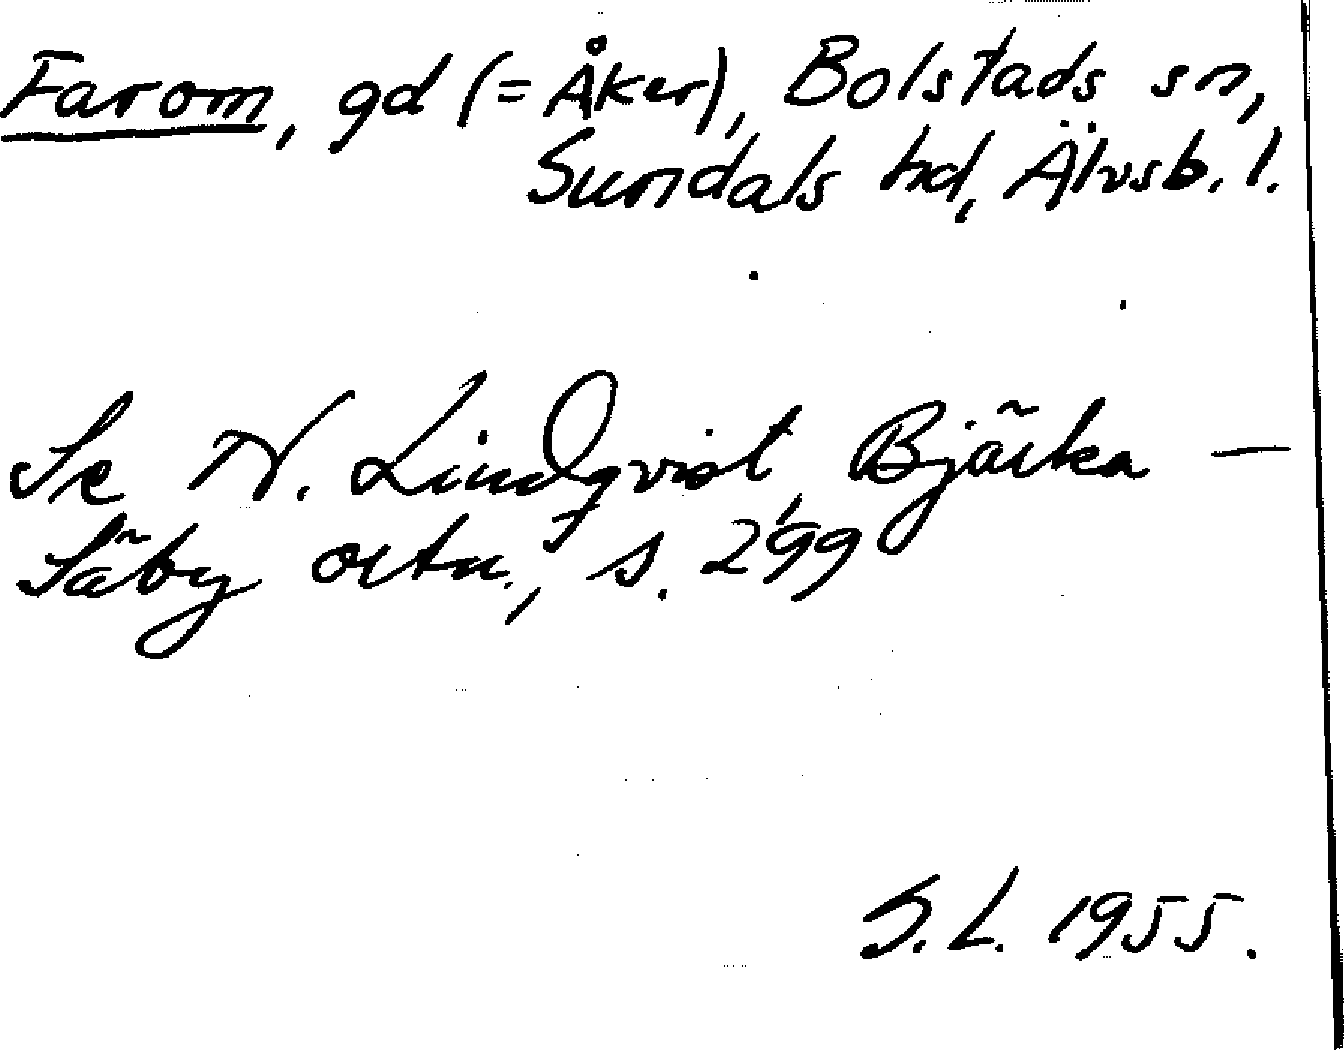 Farom, gd (= Åker), Bolstads sn,
Sundals hd, Älvsb. l.
Se N. Lindqvist, Bjärka –
Säby ortn., s. 299
S.L. 1955.